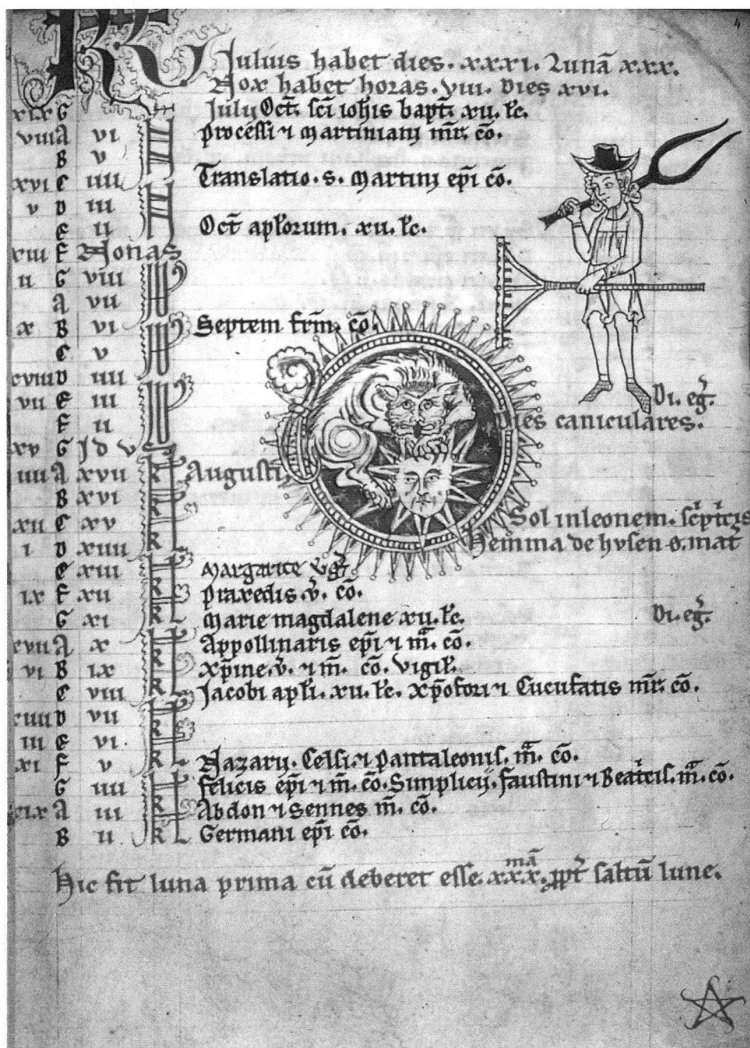 KL Julius habet dies. xxxi. Lunā xxx.
Nox habet horas. viii. dies xvi.
xix G July Oct̄. sc̄i ioh̄is bapt̄. xii. lc̄.
viii A vi N processi ⁊ martiniani mr̄. cō.
B v N
xvi C iiii N Translatio. s. martini ep̄i cō.
v D iii N
E ii N Oct̄ apl̄orum. xii. lc̄.
xiii F Nonas
ii G viii
A vii
x B vi Septem frm̄. cō.
C v
xviii D iiii
vii E iii Di. eḡ.
F ii dies caniculares.
xv G Idus
iiii A xvii k Augusti
B xvi k
xii C xv k Sol in leonem.
i D xiiii k Hemma de husen o. mat̄
E xiii k Margarite
ix F xii k praxedis v̄. cō.
G xi k Marie magdalene xii. lc̄. Di. eḡ.
xvii A x k Appollinaris ep̄i ⁊ m̄. cō.
vi B ix k xp̄ine. v̄. ⁊ m̄. cō. vigil̄.
C viii k Jacobi apl̄i. xii. lc̄. xp̄ofori ⁊ Cucufatis mr̄. cō.
xiiii D vii k
iii E vi k
xi F v k Nazarii. Celsi ⁊ pantaleonis. m̄. cō.
G iiii k felicis ep̄i ⁊ m̄. cō. Simplicii. faustini ⁊ Beatr̄cis. m̄. cō.
xix A iii k Abdon ⁊ Sennes m̄. cō.
B ii k Germani ep̄i cō.
Hic fit luna prima cū deberet esse. xxx.mā ꝓpt̄ saltū lune.